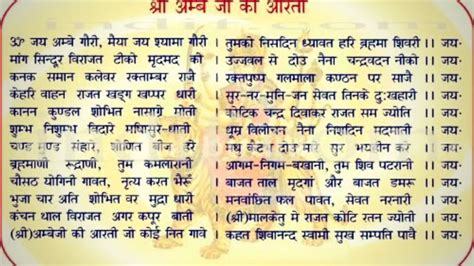 श्री अम्बे जी की आरती
ॐ जय अम्बे गौरी, मैया जय श्यामा गौरी | तुमको निसदिन ध्यावत हरि ब्रहमा शिवरी || जय-
मांग सिन्दूर विराजत टीको मृदमद को | उज्जवल से दोउ नैना चन्द्रवदन नीको || जय-
कनक समान कलेवर रक्ताम्बर राजै | रक्तपुष्प गलमाला कण्ठन पर साजै || जय-
केहरि वाहन राजत खड्ग खप्पर धारी | सुर-नर-मुनि-जन सेवत तिनके दुःखहारी || जय-
कानन कुण्डल शोभित नासाग्रे मोती | कोटिक चन्द्र दिवाकर राजत सम ज्योति || जय-
शुम्भ निशुम्भ विदारे महिषासुर-धाती | धूम्र विलोचन नैना निशदिन मदमाती || जय-
चण्ड मुण्ड संहारे, शोणित बीज हरे | मधु कैटभ दोउ मारे सुर भयहीन करे || जय-
ब्रहमाणी रूद्राणी, तुम कमलारानी | आगम-निगम-बखानी, तुम शिव पटरानी || जय-
चौसठ योगिनी गावत, नृत्य करत भैरूँ | बाजत ताल मृदगां और बाजत डमरू || जय-
भुजा चार अति शोभित वर मुद्रा धारी | मनवांछित फल पावत, सेवत नरनारी || जय-
कंचन थाल विराजत अगर कपूर बाती | (श्री)मालकेतु में राजत कोटि रतन ज्योती || जय-
(श्री)अम्बेजी की आरती जो कोई नित गावे | कहत शिवानन्द स्वामी सुख सम्पति पावे || जय-